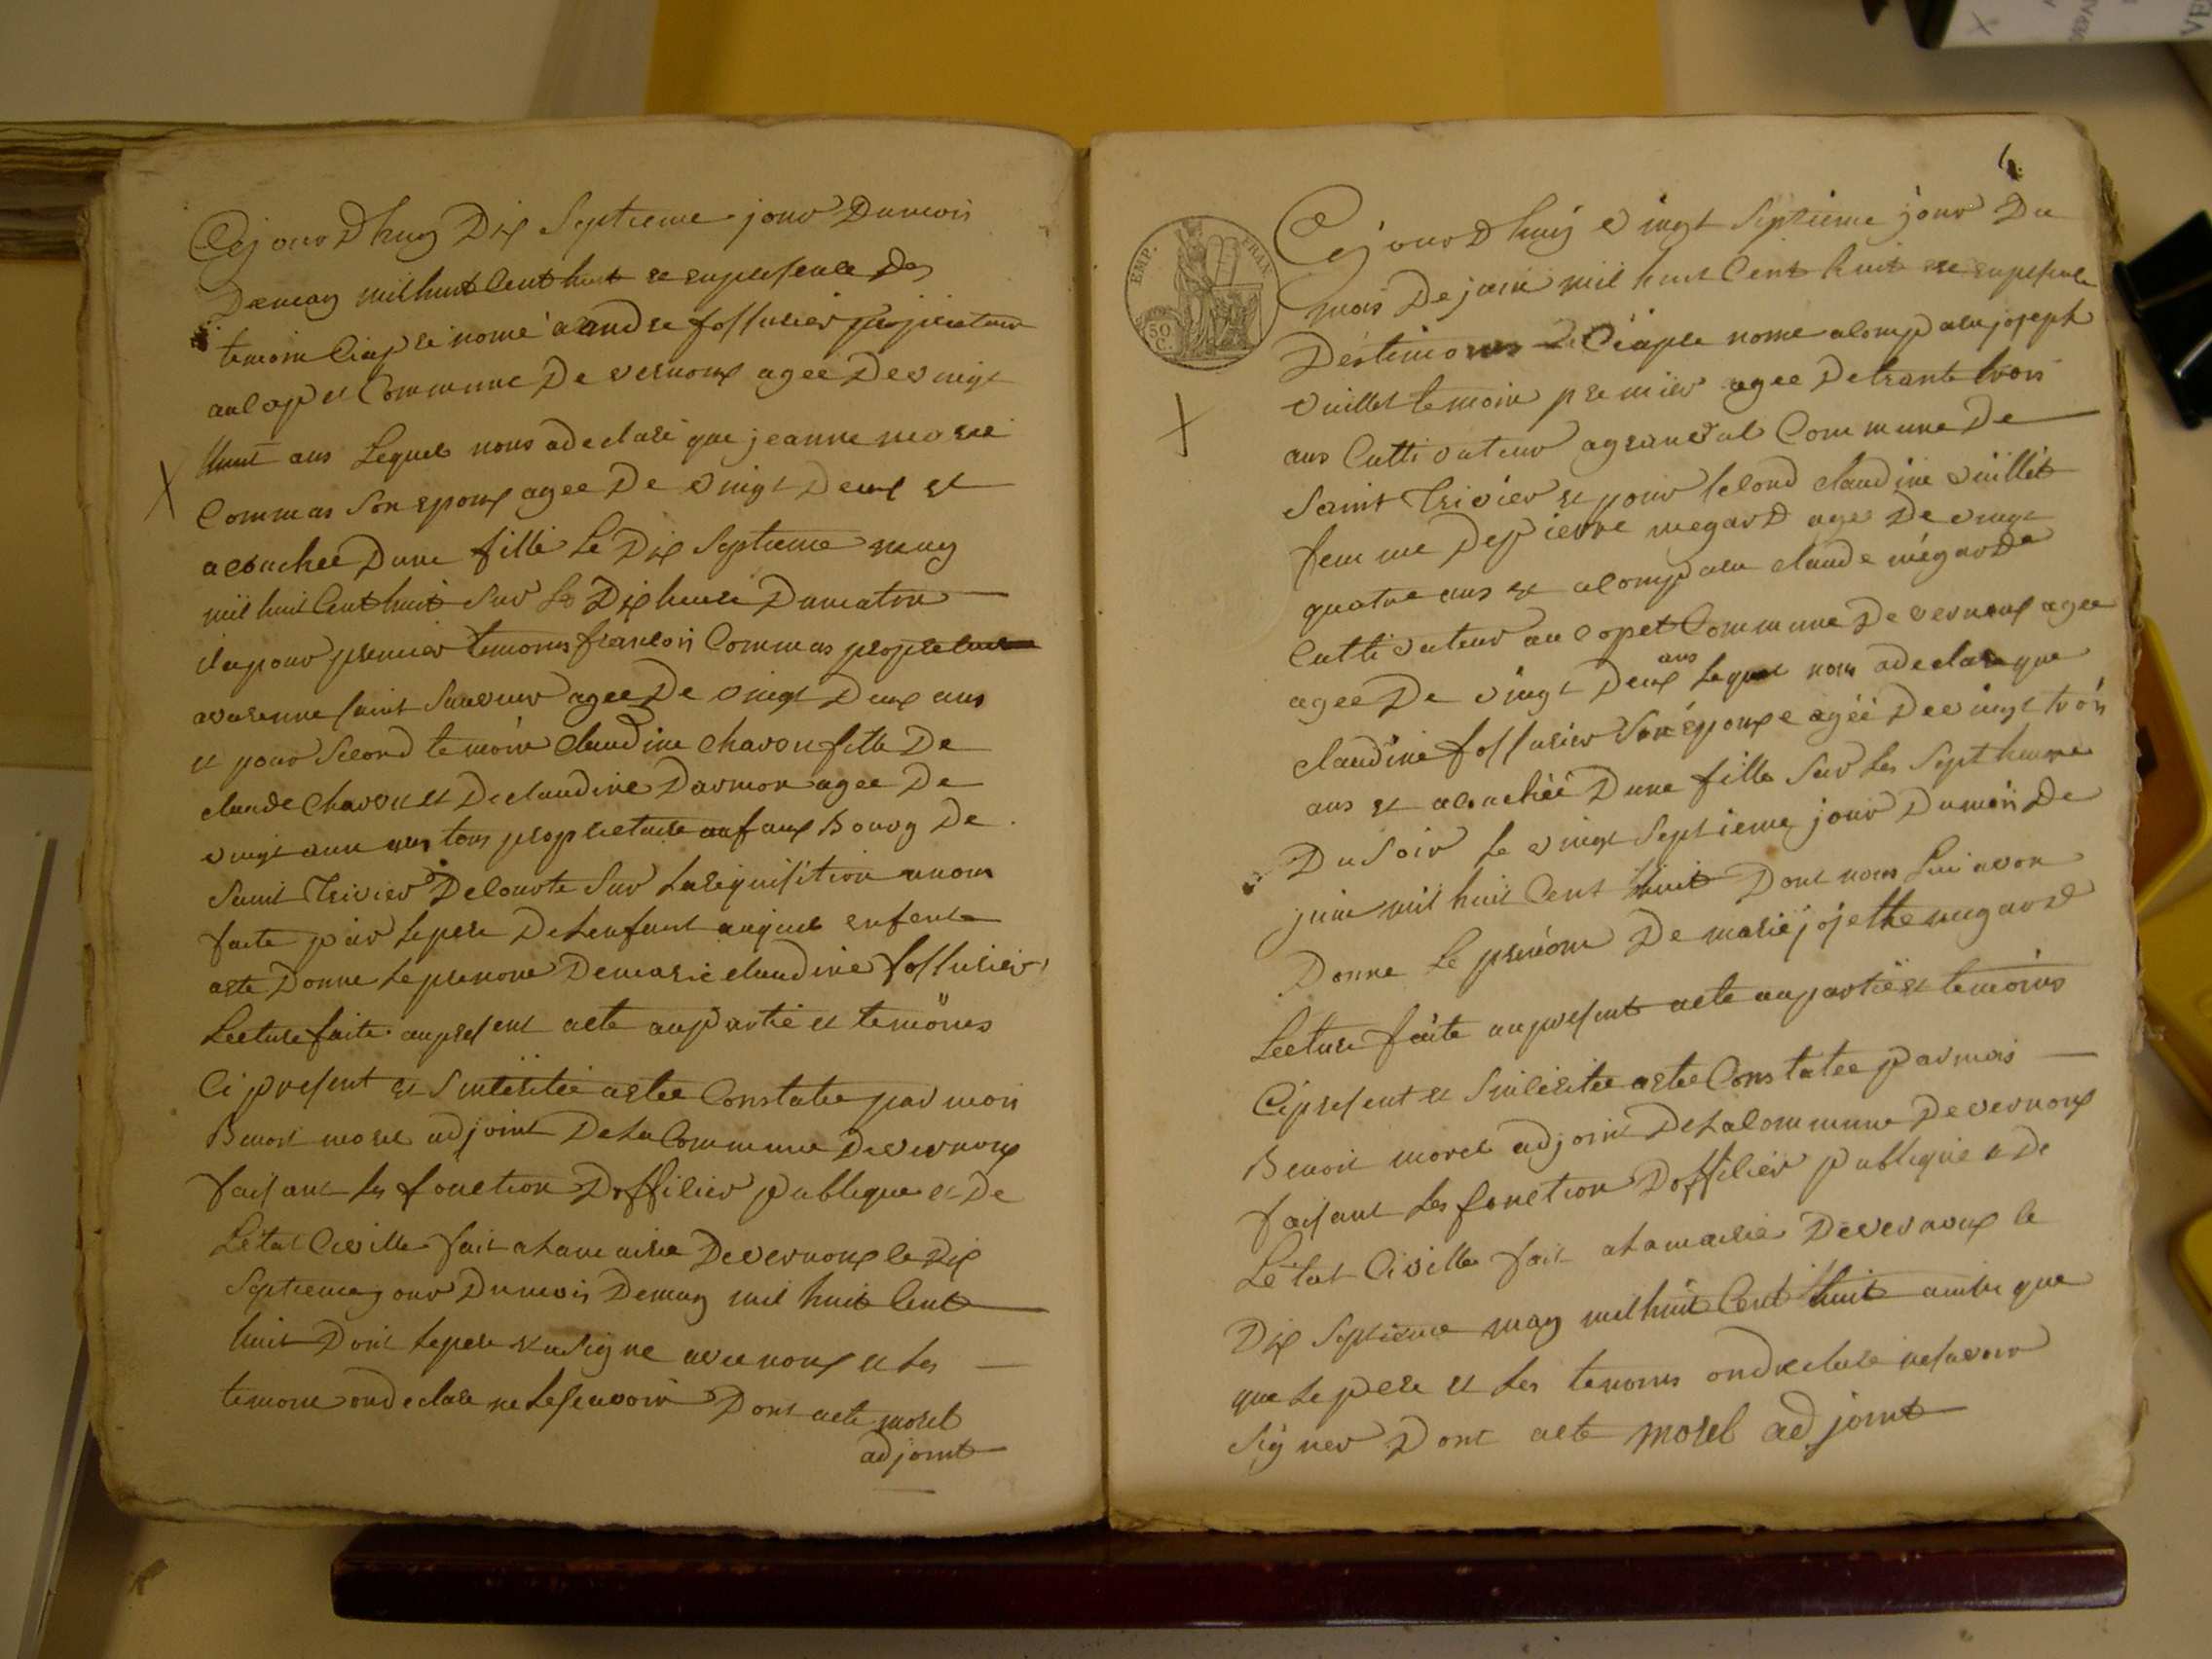 Cejourdhuy Dix Septieme jour Dumois
Demay mil huit Cent huit et enpresence Des
temoin Ciapre nomé andre fossurier proprietaire
au Copet Commune De vernoux ageé Devingt
huit ans Lequel nous adeclaré que jeanne marie
Commas Son epoux agee De vingt Deux et
acouchee Dune fille Le Dix Septieme may
mil huit Cent huit Sur Le Dix heure Dumatin
ila pour premier temoins francois Commas propretaire
avarenne Saint Sauveur agee De vingt Deux ans
et pour Second temoin Claudine Chavon fille De
claude Chavon et Declaudine Darmon agee De
vingt ans tous propretaire aufaux Bourg De
Saint Trivier Decourte Sur La requisition anous
faite par Le pere De Lenfant auquel enfent
aete Donne Le prenone Demarie claudine fossurier
Lecture faite aupresent acte aupartie et temoins
Ci present et Sinterité aetee Constatee par mois
Benoit morel adjoint De La Commune Devernoux
faisant Les fonction Dofficier publique et De
Létat Civille fait a La mairie Devernoux le dix
Septieme jour Dumois Demay mil huit Cent
huit Dont Le pere et a Signe avec noux et Les
temoins ondeclare ne Le scavoir Dont acte morel
adjoint
6.
EMP. FRAN.
50 C.
Cejourdhuij vingt Septieme jour Du
mois De juin mil huit Cent huit et enpresence
Destemoins Ciapre nome acompaeu joseph
vuillet temoin premier agee Detrante trois
ans Cuttivateur agranval Commune De
Saint Trivier et pour second claudine vuillet
femme Depierre megard agee De vingt
quatre ans et acompaeu claude mégard
Cuttivateur au Copet Commune De vernoux agee
agee De vingt Deux ans Lequel nous adeclare que
claudine fossurier Son épouxe agéé Devingt trois
ans et acouchéé Dune fille Sur Les Sept heures
Du Soir Le vingt Septieme jour Dumois De
juin mil huit Cent huit Dont nous Lui avon
Donne Le prenom De marie josette megard
Lecture faite aupresent acte aupartie et temoins
Cipresent et Sincérité aetee Constatee parmois
Benoit morel adjoint De La Commune Devernoux
faisant Les fonction Dofficier publique et De
Létat Civille fait a La mairie Devernoux le
Dix Septieme may mil huit Cent huit ainsi que
que Le pere et Les temoins ondeclare nesavoir
Signer Dont acte morel adjoint